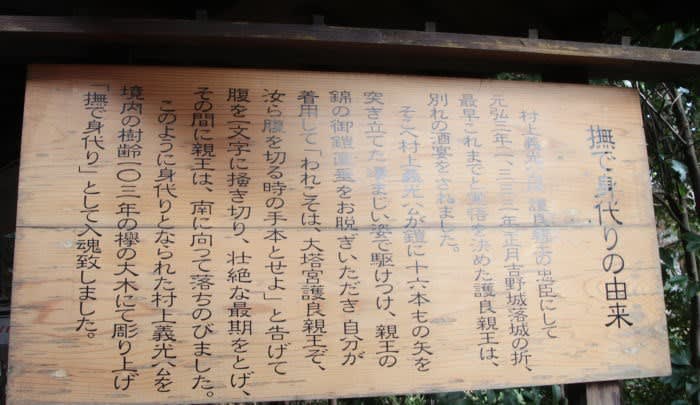 撫で身代りの由来
村上義光公は護良親王の忠臣にして
元弘三年一、三三三年正月吉野城落城の折、
最早これまでと覚悟を決めた護良親王は、
別れの酒宴をされました。
そこへ村上義光公が鎧に十六本もの矢を
突き立てた凄まじい姿で駆けつけ、親王の
錦の御鎧直垂をお脱ぎいただき自分が
着用して「われこそは、大塔宮護良親王ぞ、
汝ら腹を切る時の手本とせよ」と告げて
腹を一文字に掻き切り、壮絶な最期をとげ、
その間に親王は、南に向って落ちのびました。
このように身代りとなられた村上義光公を
境内の樹齢一〇三年の欅の大木にて彫り上げ
「撫で身代り」として入魂致しました。